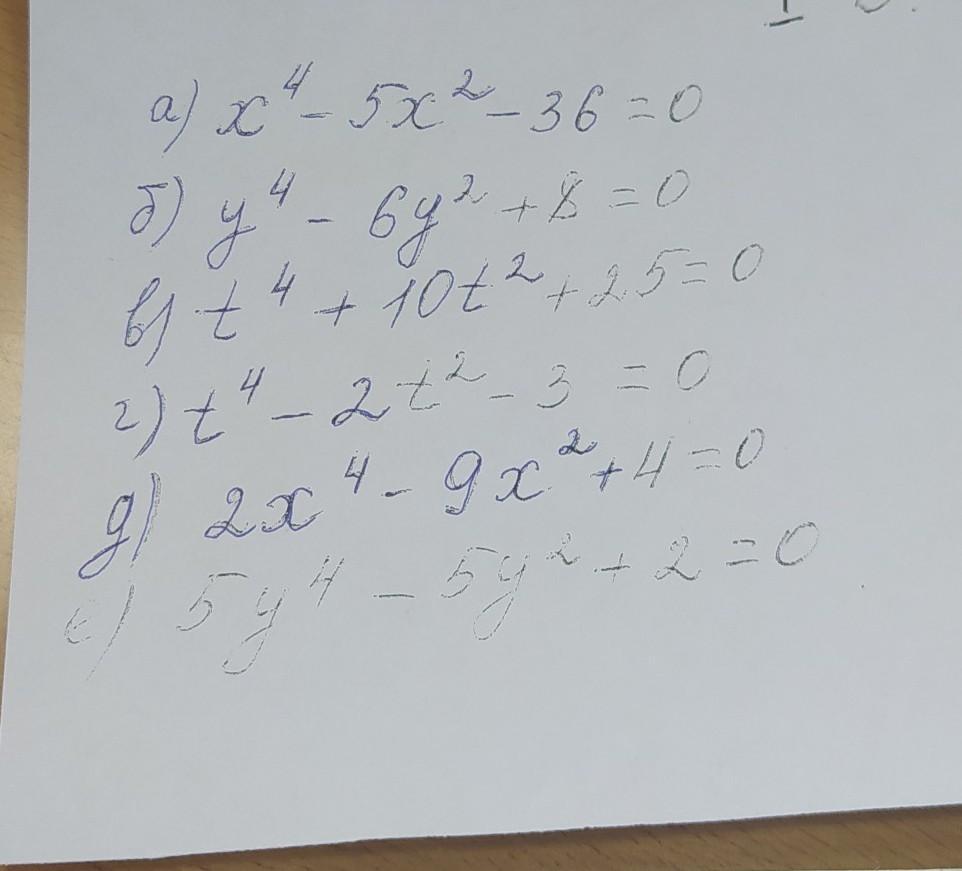 а) x⁴ - 5x² - 36 = 0
б) y⁴ - 6y² + 8 = 0
в) t⁴ + 10t² + 25 = 0
г) t⁴ - 2t² - 3 = 0
д) 2x⁴ - 9x² + 4 = 0
е) 5y⁴ - 5y² + 2 = 0